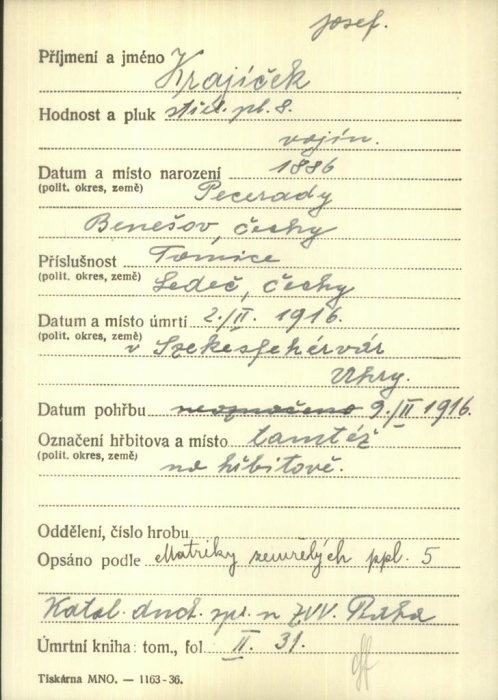 Josef.
Příjmení a jméno Krajíček
Hodnost a pluk střel. pl. 8.
vojín.
Datum a místo narození 1886
(polit. okres, země) Pecerady
Benešov, Čechy
Příslušnost Tomice
(polit. okres, země) Ledeč, Čechy
Datum a místo úmrtí 2./II. 1916.
(polit. okres, země) v Szekesfehérvár
Uhry.
Datum pohřbu neoznačeno 9./II 1916.
Označení hřbitova a místo tamtéž
(polit. okres, země) na hřbitově.
Oddělení, číslo hrobu
Opsáno podle Matriky zemřelých ppl. 5
Katol. duch. spr. n ZVV. Praha
Úmrtní kniha: tom., fol II. 31.
Tiskárna MNO. — 1163-36.